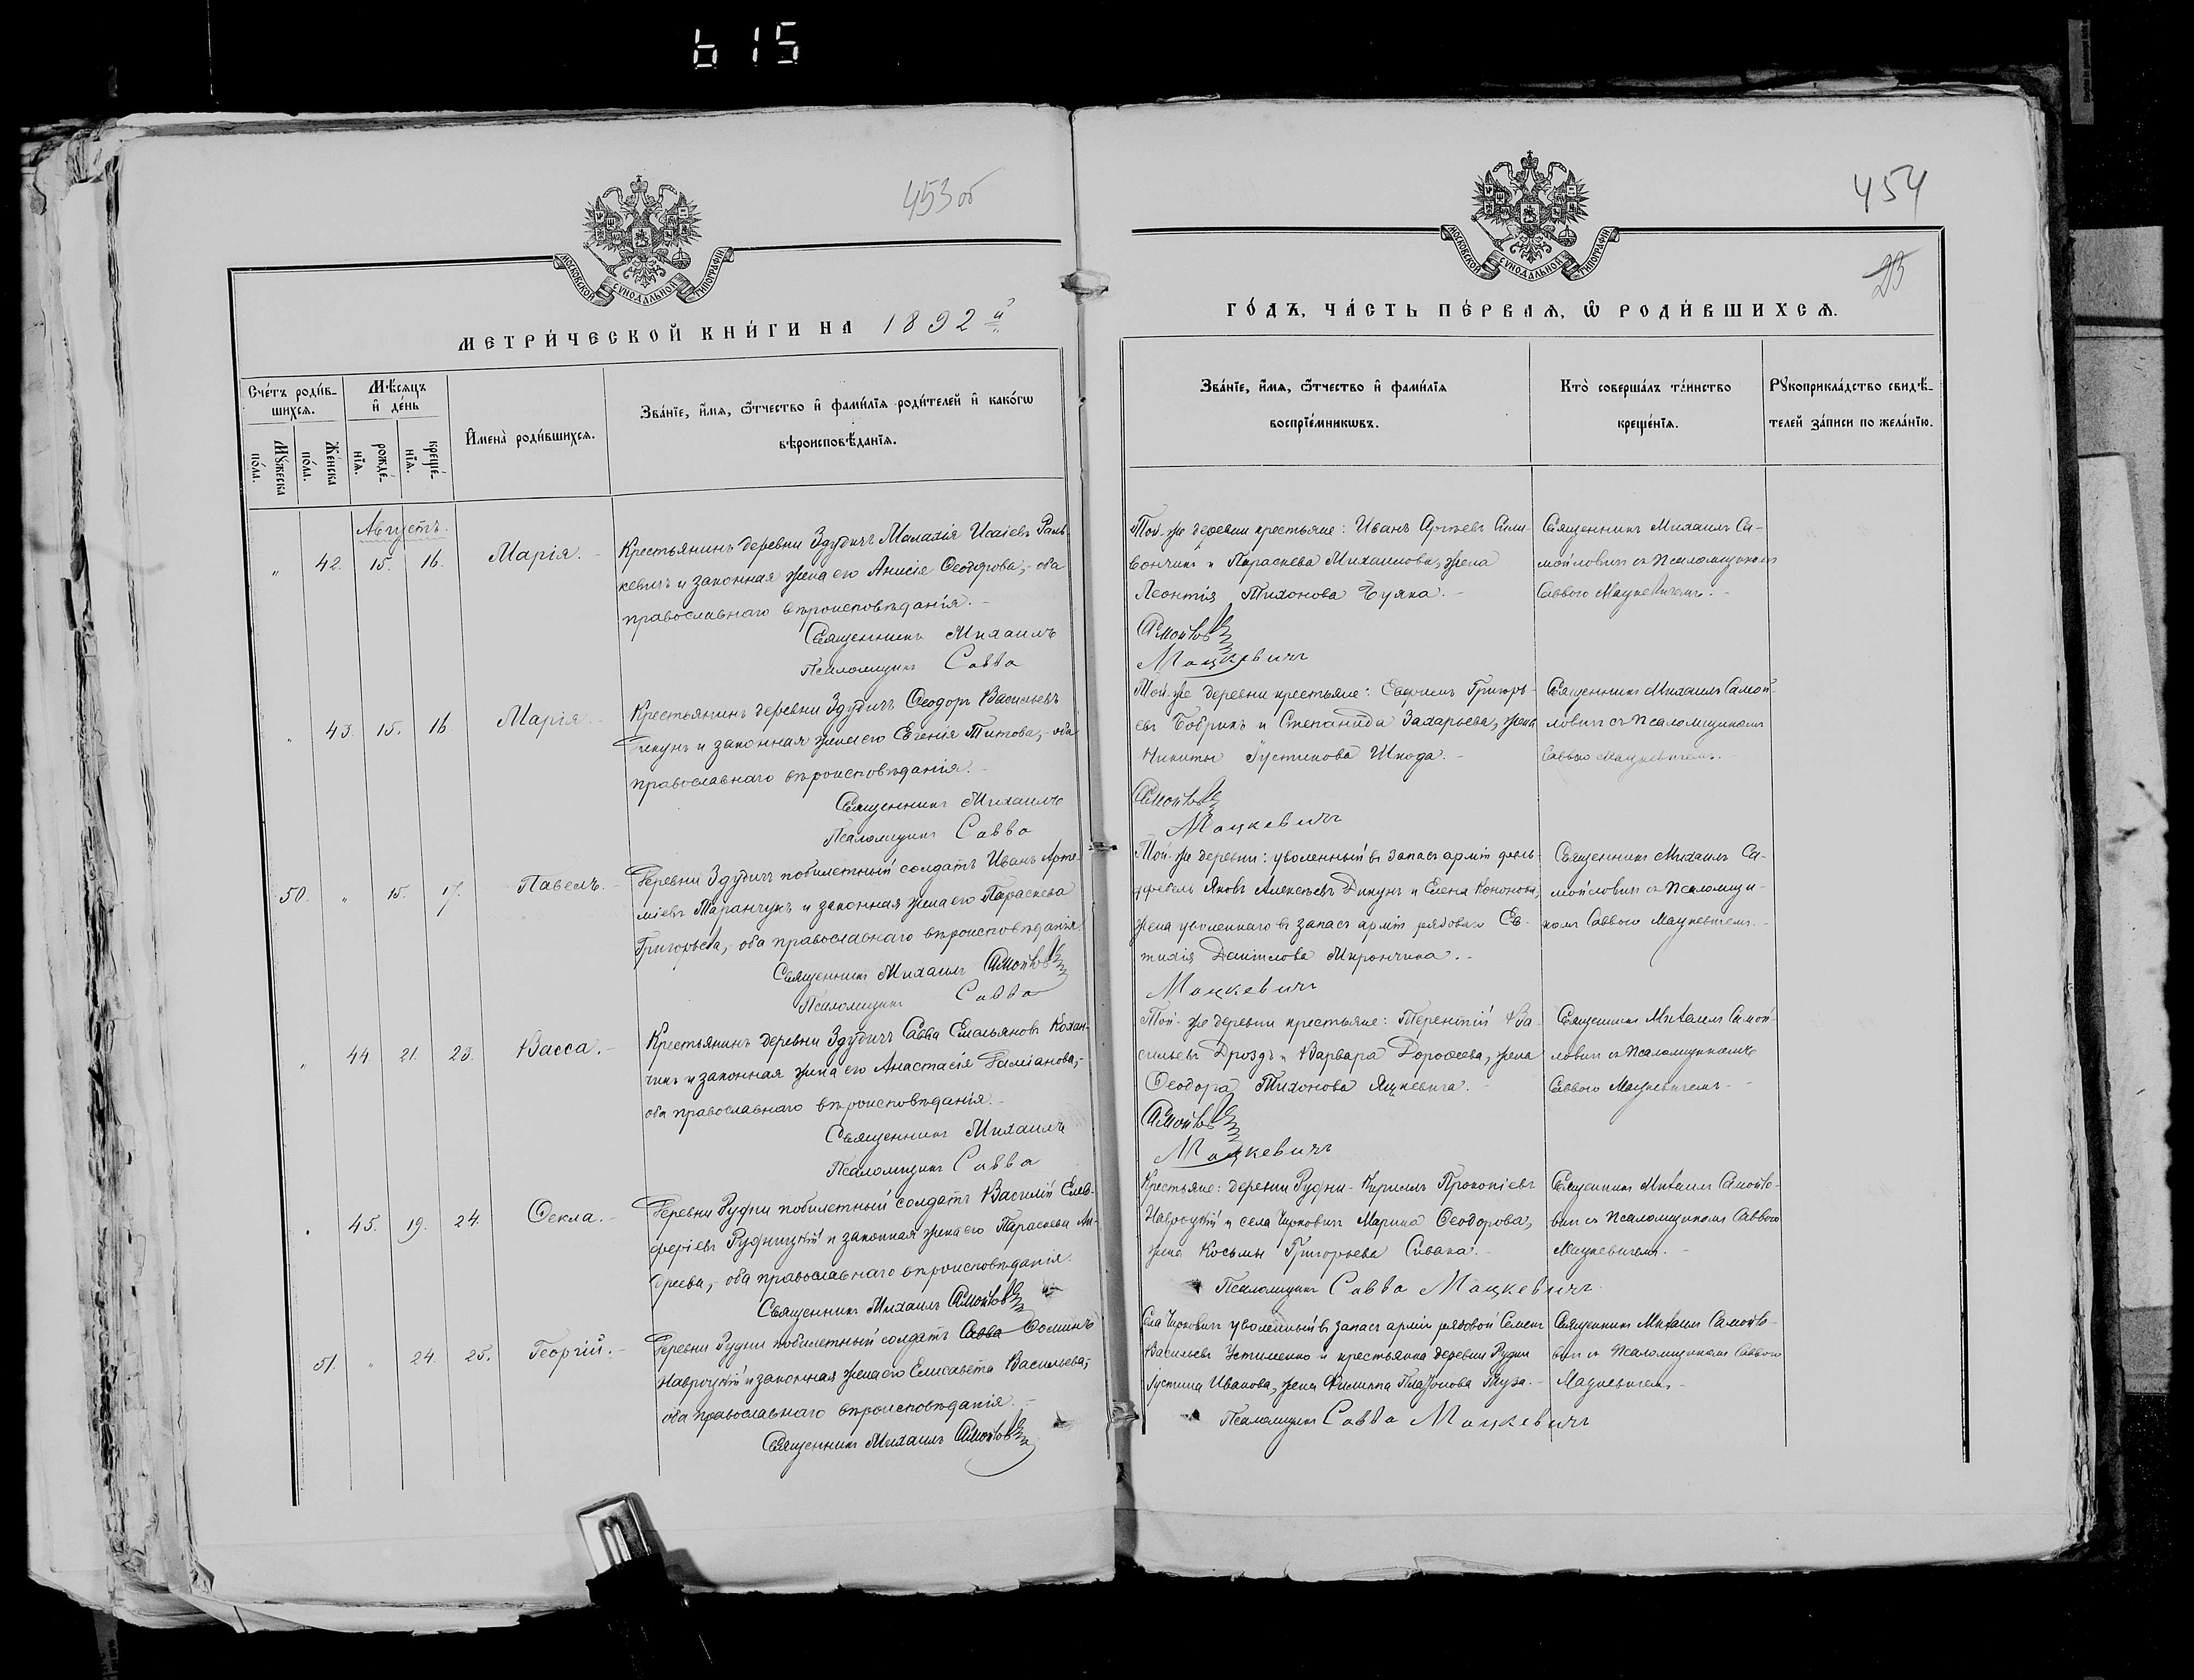 615
453 об
МОСКОВСКОЙ СѴНОДАЛЬНОЙ ТИПОГРАФІИ
МЕТРИ́ЧЕСКОЙ КНИ́ГИ НА 1892 й
Сче́тъ роди́в-
шихсѧ.
Мѣ́сѧцъ
и҆ де́нь
И҆мена̀ роди́вшихсѧ.
Зва́нїе, и҆́мѧ, ѻ҆́тчество и҆ фами́лїѧ роди́телей и҆ како́гѡ
вѣроисповѣ́данїѧ.
Мꙋ́жеска
по́ла.
Же́нска
по́ла.
рожде́-
нїѧ.
креще́-
нїѧ.
Августъ.
" 42. 15. 16. Марія. -
Крестьянинъ деревни Здудичъ Малахія Исаіевъ Рань-
кевичъ и законная жена его Анисія Ѳеодорова,- оба
православнаго вѣроисповѣданія. -
Священникъ Михаилъ
Псаломщикъ Савва
" 43. 15. 16. Марія. -
Крестьянинъ деревни Здудичъ Ѳеодоръ Васильевъ
Дикунъ и законная жена его Евгенія Титова,- оба
православнаго вѣроисповѣданія. -
Священникъ Михаилъ
Псаломщикъ Савва
50. " 15. 17. Павелъ. -
Деревни Здудичъ побилетный солдатъ Иванъ Арте-
міевъ Таранчукъ и законная жена его Параскева
Григорьева,- оба православнаго вѣроисповѣданія.
Священникъ Михаилъ Самойлов
Псаломщикъ Савва
" 44 21. 23. Васса. -
Крестьянинъ деревни Здудичъ Савва Емельяновъ Кохан-
чикъ и законная жена его Анастасія Даміанова,-
оба православнаго вѣроисповѣданія. -
Священникъ Михаилъ
Псаломщикъ Савва
" 45. 19. 24. Ѳекла. -
Деревни Рудни побилетный солдатъ Василій Елев-
феріевъ Рудницкій и законная жена его Параскева Ан-
дреева,- оба православнаго вѣроисповѣданія.
Священникъ Михаилъ Самойлов
51. " 24. 25. Георгій. -
Деревни Рудни побилетный солдатъ Савва Ѳоминъ
Навроцкій и законная жена его Елисавета Васильева,-
оба православнаго вѣроисповѣданія. -
Священникъ Михаилъ Самойлов
454
23
МОСКОВСКОЙ СѴНОДАЛЬНОЙ ТИПОГРАФІИ
ГО́ДЪ, ЧА́СТЬ ПЕ́РВАѦ, Ѡ҆ РОДИ́ВШИХСѦ.
Зва́нїе, и҆́мѧ, ѻ҆́тчество и҆ фами́лїѧ
воспрїе́мникѡвъ.
Кто̀ соверша́лъ та́инство
креще́нїѧ.
Рꙋкоприкла́дство свидѣ́-
телей за́писи по жела́нїю.
Той-же деревни крестьяне: Иванъ
вончикъ и Параскева Михаилова, жена
Леонтія Тихонова Буяка. -
Священникъ Михаилъ Са-
мойловичъ съ Псаломщикомъ
Саввою Мацкевичемъ. -
Самойлов
Мацкевичъ
Той-же деревни крестьяне: Евфимъ Григорь-
евъ Бобрикъ и Степанида Захарьева, жена
Никиты Іустинова Шкода. -
Священникъ Михаилъ Самой-
ловичъ съ Псаломщикомъ
Саввою Мацкевичемъ. -
Самойлов
Мацкевичъ
Той-же деревни: уволенный въ запасъ арміи фельд-
фебель Яковъ Алексѣевъ Дикунъ и Елена Кононова,
жена уволеннаго въ запасъ арміи рядового Ев-
тихія Даніилова Мирончика. -
Священникъ Михаилъ Са-
мойловичъ съ Псаломщи-
комъ Саввою Мацкевичемъ. -
Мацкевичъ
Той-же деревни крестьяне: Терентій Ва-
сильевъ Дроздъ и Варвара Дороѳеева, жена
Ѳеодора Тихонова Яцкевича. -
Священникъ Михаилъ Самой-
ловичъ съ Псаломщикомъ
Саввою Мацкевичемъ. -
Самойлов
Мацкевичъ
Крестьяне: деревни Рудни - Кириллъ Прокопіевъ
Навроцкій и села Чирковичъ Марина Ѳеодорова,
жена Косьмы Григорьева Сивака. -
Священникъ Михаилъ Самойло-
вичъ съ Псаломщикомъ Саввою
Мацкевичемъ. -
Псаломщикъ Савва Мацкевичъ
Села Чирковичъ уволенный въ запасъ арміи рядовой Семенъ
Васильевъ Устименко и крестьянка деревни Рудни
Іустина Иванова, жена Филиппа Платонова Гауза. -
Священникъ Михаилъ Самойло-
вичъ съ Псаломщикомъ Саввою
Мацкевичемъ. -
Псаломщикъ Савва Мацкевичъ